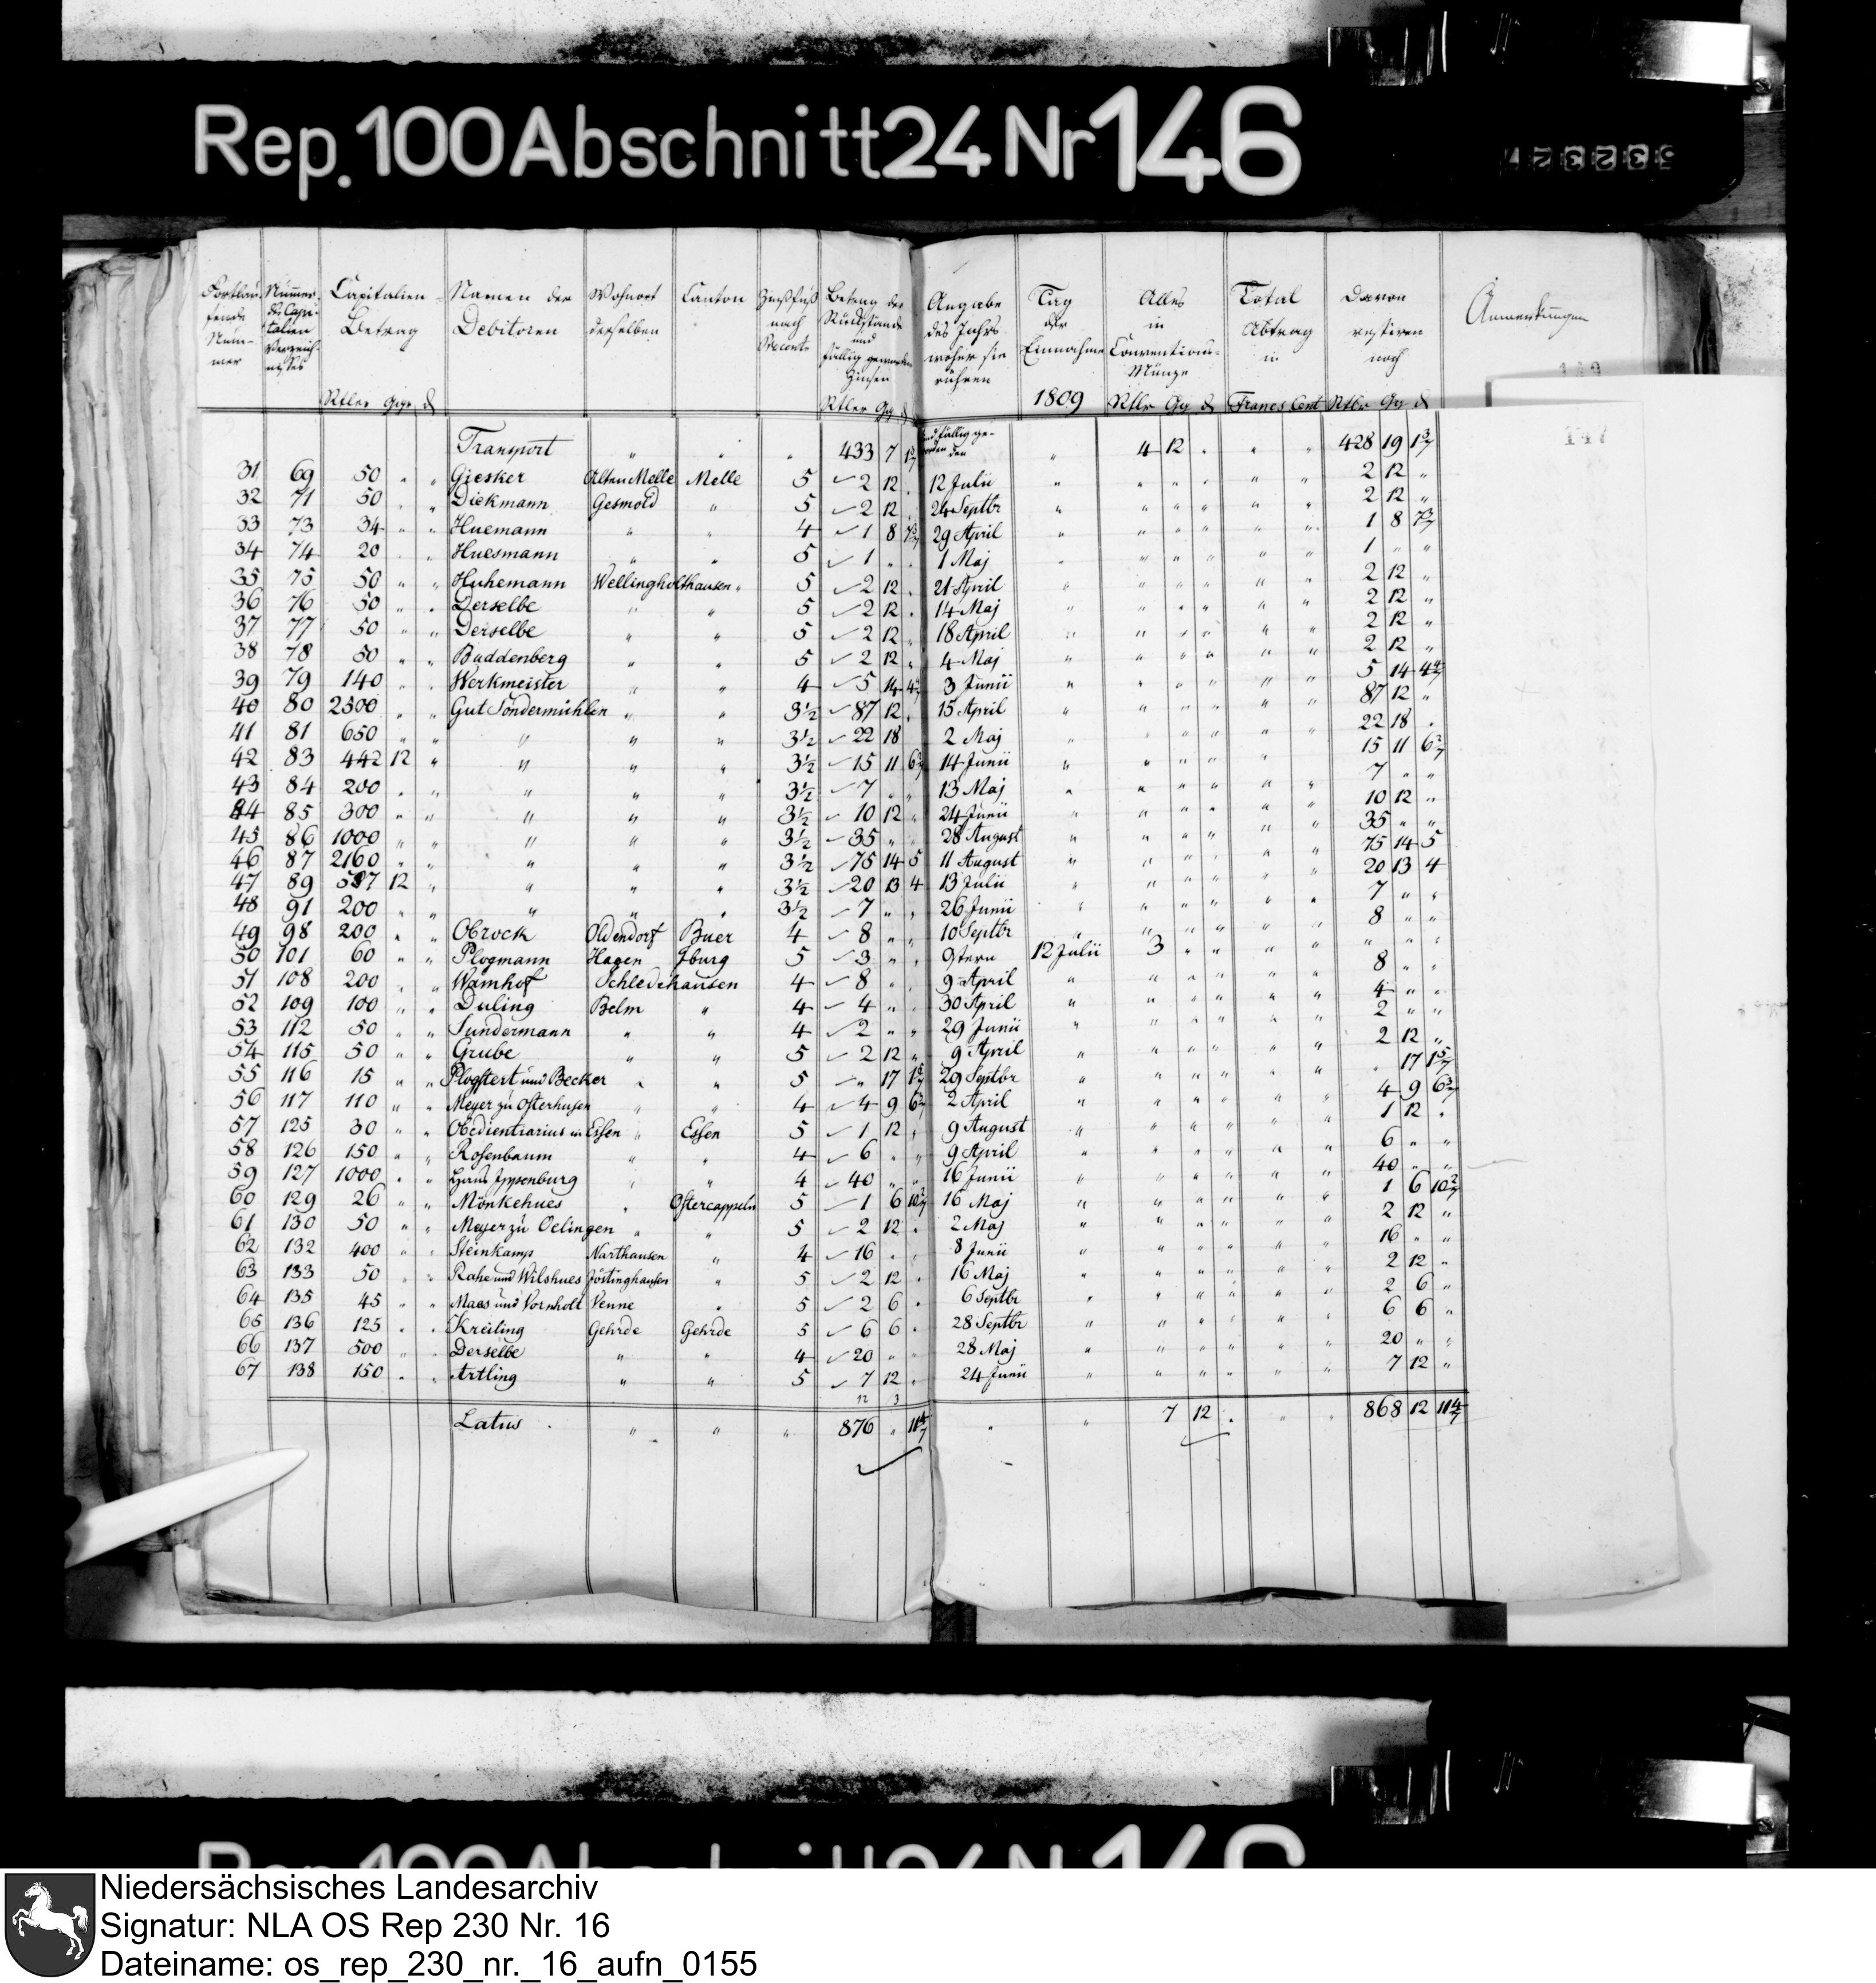 Rep. 100 Abschnitt 24 Nr 146
Fortlaufende Nummer | Nummer des Capitalien Verzeichnisses | Capitalien Betrag Rtler Ggr ₰ | Namen der Debitoren | Wohnort derselben | Canton | Zinsfuß nach Procent | Betrag der Rückstände und fällig geworden Zinsen Rtler Gg ₰ | Angabe des Jahrs woher sie rühren | Tag der Einnahme 1809 | Alles in Conventions-Münze Rtlr Gg ₰ | Total Abtrag in Francs Cent | Davon restiren noch Rtlr Gg ₰ | Anmerkungen
Transport " " " 433 7 1 3/7 und fällig geworden den " 4 12 " " " 428 19 1 3/7
31 69 50 " " Giesker Alten Melle Melle 5 2 12 " 12 Julii " " " " " " 2 12 "
32 71 50 " " Diekmann Gesmold " 5 2 12 " 24 Septbr " " " " " " 2 12 "
33 73 34 " " Huemann " " 4 1 8 7 3/7 29 April " " " " " " 1 8 7 3/7
34 74 20 " " Huesmann " " 5 1 " " 1 Maj " " " " " " 1 " "
35 75 50 " " Huhemann Wellingholthausen " 5 2 12 " 21 April " " " " " " 2 12 "
36 76 50 " " Derselbe " " 5 2 12 " 14 Maj " " " " " " 2 12 "
37 77 50 " " Derselbe " " 5 2 12 " 18 April " " " " " " 2 12 "
38 78 50 " " Buddenberg " " 5 2 12 " 4 Maj " " " " " " 2 12 "
39 79 140 " " Werkmeister " " 4 5 14 4 4/7 3 Junii " " " " " " 5 14 4 4/7
40 80 2500 " " Gut Sondermühlen " " 3½ 87 12 " 15 April " " " " " " 87 12 "
41 81 650 " " " " " 3½ 22 18 " 2 Maj " " " " " " 22 18 "
42 83 442 12 " " " " 3½ 15 11 6 2/7 14 Junii " " " " " " 15 11 6 2/7
43 84 200 " " " " " 3½ 7 " " 13 Maj " " " " " " 7 " "
44 85 300 " " " " " 3½ 10 12 " 24 Junii " " " " " " 10 12 "
45 86 1000 " " " " " 3½ 35 " " 28 August " " " " " " 35 " "
46 87 2160 " " " " " 3½ 75 14 5 11 August " " " " " " 75 14 5
47 89 587 12 " " " " 3½ 20 13 4 13 Julii " " " " " " 20 13 4
48 91 200 " " " " " 3½ 7 " " 26 Junii " " " " " " 7 " "
49 98 200 " " Obrock Oldendorf Buer 4 8 " " 10 Septbr " " " " " " 8 " "
50 101 60 " " Plogmann Hagen Iburg 5 3 " " 12 Julii 3 " " " " " " "
51 108 200 " " Wamhof Schledehausen 4 8 " " 9 April " " " " " " 8 " "
52 109 100 " " Duling Belm " 4 4 " " 30 April " " " " " " 4 " "
53 112 50 " " Sundermann " " 4 2 " " 29 Junii " " " " " " 2 " "
54 115 50 " " Grube " " 5 2 12 " 9 April " " " " " " 2 12 "
55 116 15 " " Plogstert und Becker " " 5 " 17 1 5/7 29 Septbr " " " " " " " 17 1 5/7
56 117 110 " " Meyer zu Osterhusen " " 4 4 9 6 3/7 2 April " " " " " " 4 9 6 3/7
57 125 30 " " Obedientiarius in Essen " Essen 5 1 12 " 9 August " " " " " " 1 12 "
58 126 150 " " Rosenbaum " " 4 6 " " 9 April " " " " " " 6 " "
59 127 1000 " " Haus Ippenburg " " 4 40 " " 16 Junii " " " " " " 40 " "
60 129 26 " " Mönkehues " Ostercappeln 5 1 6 10 2/7 16 Maj " " " " " " 1 6 10 2/7
61 130 50 " " Meyer zu Oelingen " " 5 2 12 " 2 Maj " " " " " " 2 12 "
62 132 400 " " Steinkamp Narthausen " 4 16 " " 8 Junii " " " " " " 16 " "
63 133 50 " " Rahe und Wilshues Jöstinghausen " 5 2 12 " 16 Maj " " " " " " 2 12 "
64 135 45 " " Maas und Vornholt Venne " 5 2 6 " 6 Septbr " " " " " " 2 6 "
65 136 125 " " Kreiling Gehrde Gehrde 5 6 6 " 28 Septbr " " " " " " 6 6 "
66 137 500 " " Derselbe " " 4 20 " " 28 Maj " " " " " " 20 " "
67 138 150 " " Artling " " 5 7 12 " 24 Junii " " " " " " 7 12 "
12 3
Latus " " " 876 " 11 4/7 " " 7 12 " " " 868 12 11 4/7
147
Niedersächsisches Landesarchiv
Signatur: NLA OS Rep 230 Nr. 16
Dateiname: os_rep_230_nr._16_aufn_0155